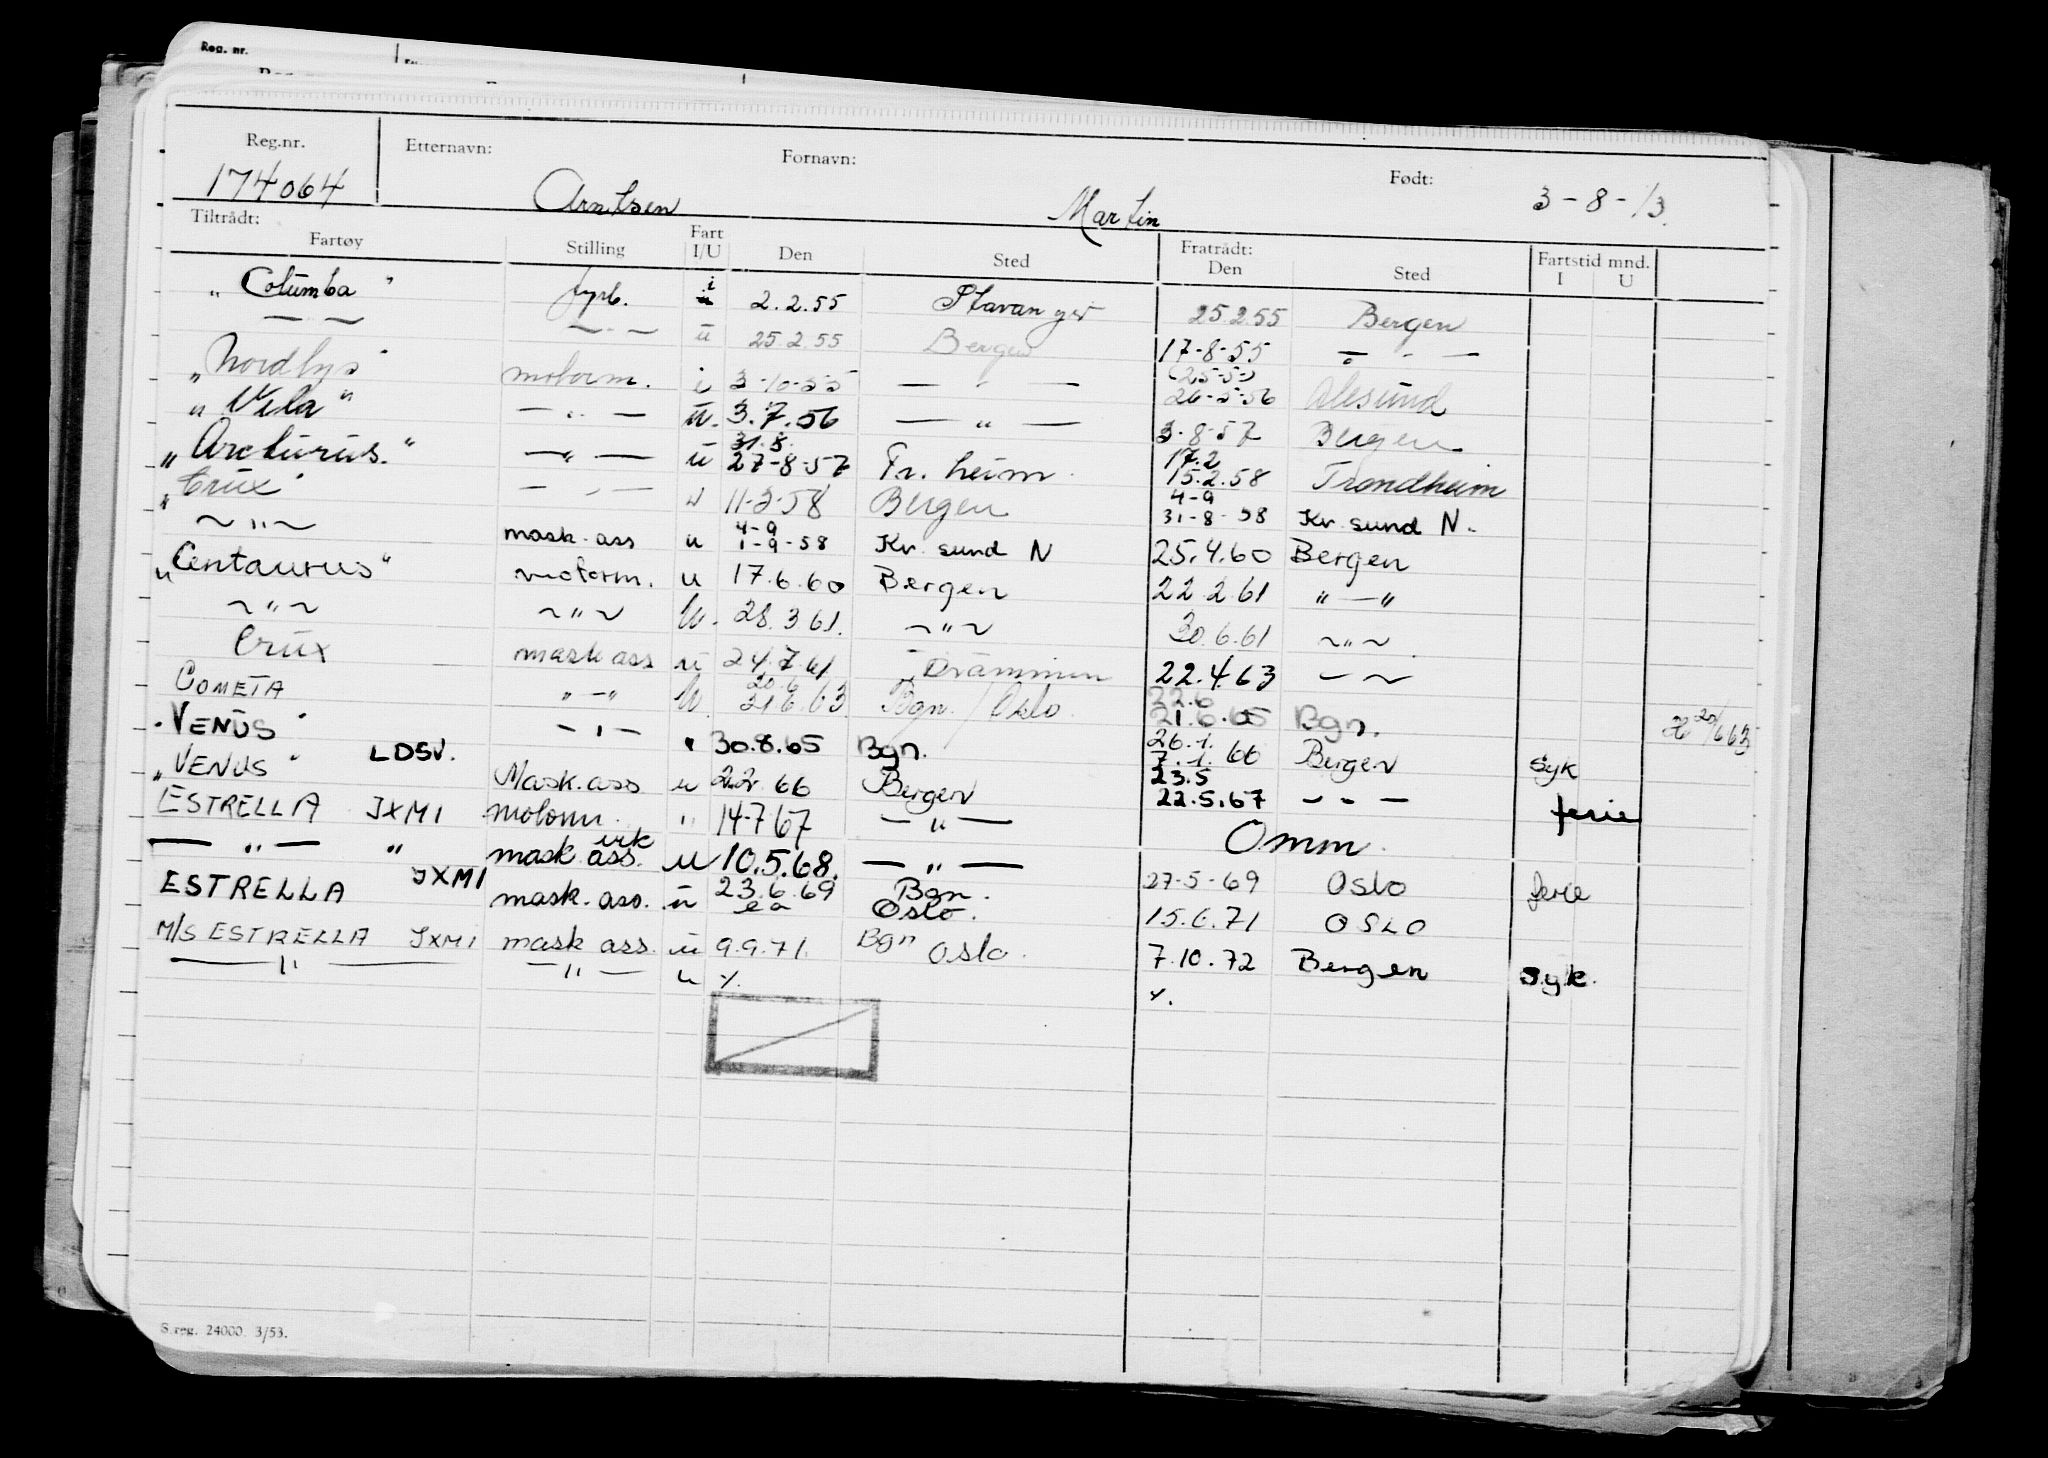 Reg. nr.
Reg.nr. Etternavn: Fornavn: Født:
174064 Arntsen Martin 3-8-13.
Tiltrådt: Fratrådt:
Fartøy Stilling Fart I/U Den Sted Den Sted Fartstid mnd. I U
"Columba" fyrb. i 2.2.55 Stavanger 25.2.55 Bergen
— — — " — u 25.2.55 Bergen 17-8-55 — " —
"Nordlys" motorm. i 3-10-55 — " — (25-5-) 26-5-56 Ålesund
"Vela" — " — u. 3.7.56 — " — 3-8-57 Bergen
"Arcturus." — " — u 31.8. 27-8-57 Tr. heim. 17.2 15.2.58 Trondheim
"Crux" — " — u 11-3-58 Bergen 4-9 31-8-58 Kr. sund N.
~ " ~ mask. ass u 4-9 1-9-58 Kr. sund N 25.4.60 Bergen
"Centaurus" motorm. u 17.6.60 Bergen 22.2.61 " — "
~ " ~ ~ " ~ u. 28.3.61. ~ " ~ 30.6.61 ~ " ~
Crux mask ass u 24.7.61 Drammen 22.4.63 ~ ~
COMETA " — " u. 20.6 21.6.63 Bgn. / Oslo. 22.6 21.6.65 Bgn. 20/663
"VENUS" LDSV. — " — " 30.8.65 Bgn. 26.1. 7.1.66 Bergen Syk
"VENUS" Mask. ass u 2.2.66 Bergen 23.5 22.5.67 — " — ferie
ESTRELLA JXMI motorm. " 14-7 67 — " — Omm.
— " — " mask. ass. u 10.5.68. — " — 27-5-69 Oslo ferie
ESTRELLA JXMI mask. ass. u 23.6.69 Bgn. Oslo. 15.6.71 OSLO
M/S ESTRELLA JXMI mask ass. u 9.9.71. Bgn Oslo. 7.10.72 Bergen Syk.
— " — — " — u %. %.
S.reg. 24000. 3/53.